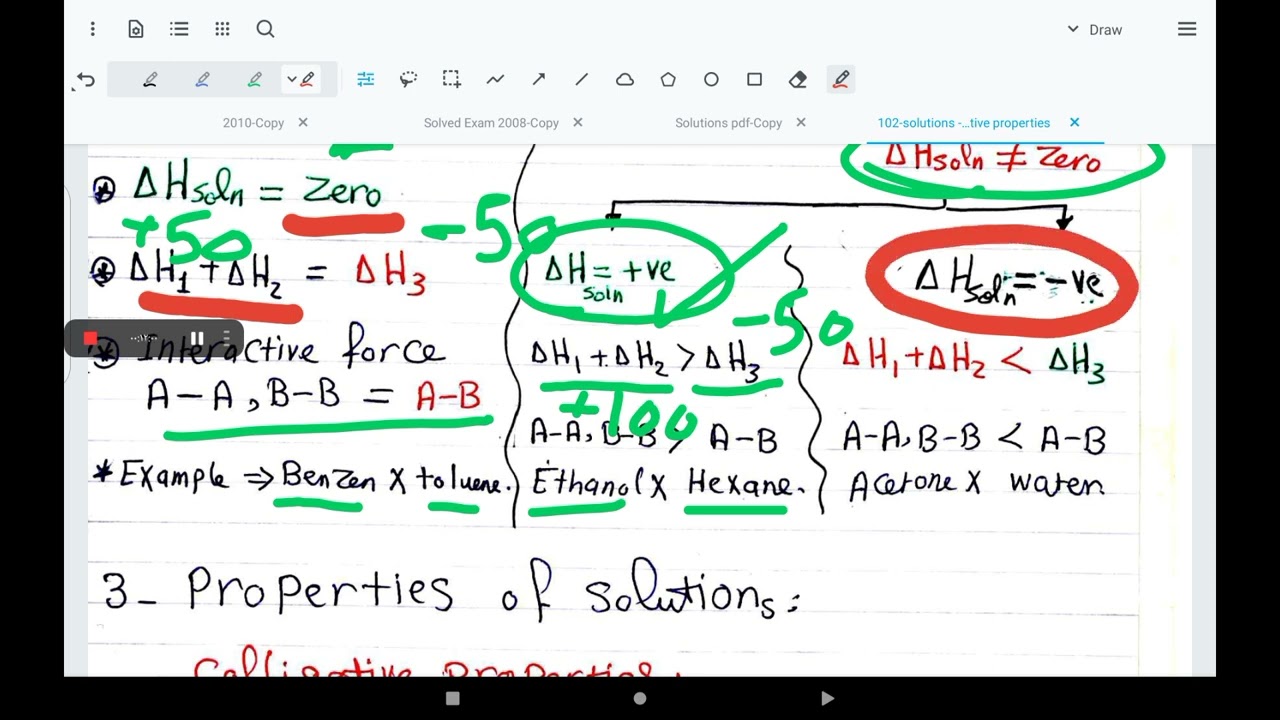 Draw
2010-Copy
Solved Exam 2008-Copy
Solutions pdf-Copy
102-solutions -...tive properties
ΔHsoln = Zero
+50
ΔH1 + ΔH2 = ΔH3
-50
Interactive force
A-A, B-B = A-B
*Example ⇒ Benzen X toluene.
ΔH soln = +ve
ΔH1 + ΔH2 > ΔH3
-50
+100
A-A, B-B > A-B
Ethanol X Hexane.
ΔHsoln ≠ Zero
ΔHsoln = -ve
ΔH1 + ΔH2 < ΔH3
A-A, B-B < A-B
Acetone X water
3- Properties of solutions:
Colligative properties: